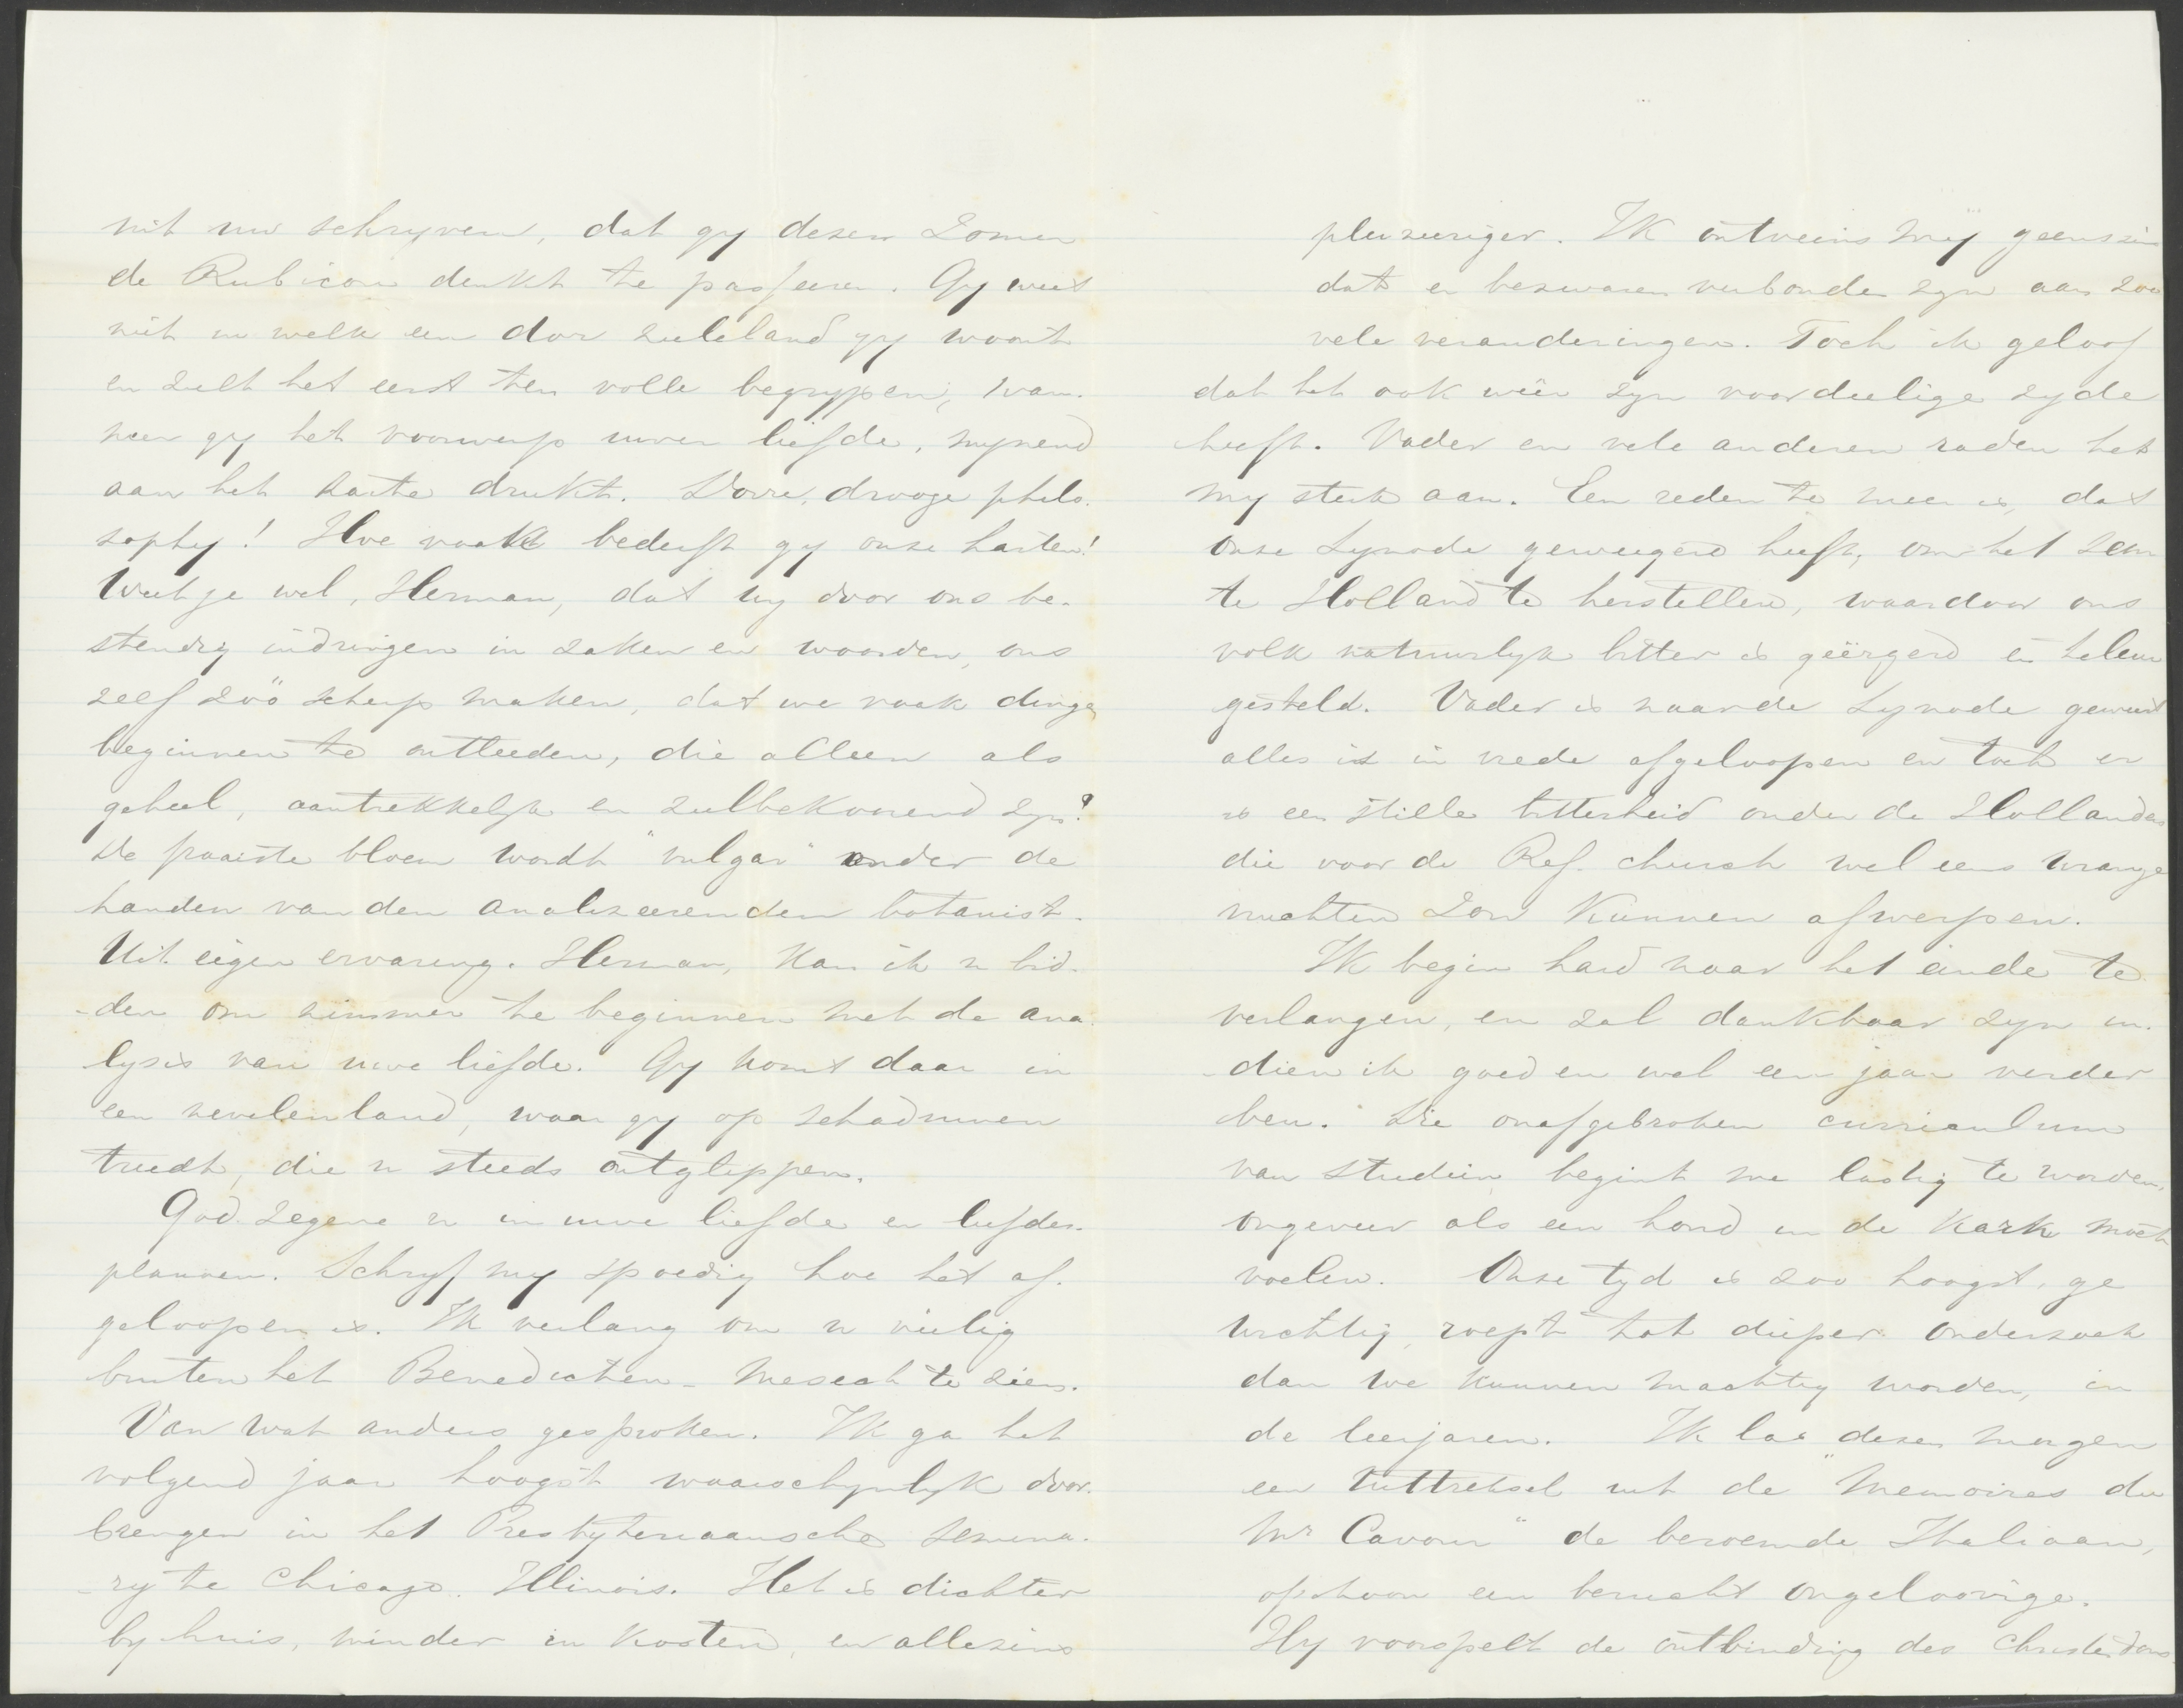 uit uw schryven, dat gy dezen Zomer
de Rubicon denkt te passeeren. Gy weet
niet in welk een dor zieleland gy woont
en zult het eerst ten volle begrypen, wan-
neer gy het voorwerp uwer liefde, mynend
aan het harte drukt. Dorre, drooge philo-
sophy! Hoe vaak bederft gy onze harten!
Weet je wel, Herman, dat wy door ons be-
stendig indringen in zaken en woorden, ons
zelf zoo scherp maken, dat we vaak dingen
beginnen te ontleeden, die alleen als
geheel, aantrekkelyk en zielbekoorend zyn?
De fraaiste bloem wordt "vulgar" onder de
handen van den analiseerenden botanist.
Uit eigen ervaring, Herman, kan ik u bid-
-den om nimmer te beginnen met de ana-
lysis van uwe liefde. Gy komt daar in
een nevelenland, waar gy op schaduwen
treedt, die u steeds ontglippen.
God zegene u in uwe liefde en liefdes-
plannen. Schryf my spoedig hoe het af-
geloopen is. Ik verlang om u veilig
buiten het Benedicten-Mesech te zien.
Van wat anders gesproken. Ik ga het
volgend jaar hoogst waarschynlyk door-
brengen in het Presbyteriaansche Semina-
-ry te Chicago. Illinois. Het is dichter
by huis, minder in kosten, en allezins
pleizieriger. Ik ontveins my geenszins
dat er bezwaren verbonden zyn aan zoo
vele veranderingen. Toch ik geloof
dat het ook weer zyn voordeelige zyde
heeft. Vader en vele anderen raden het
my sterk aan. Een reden te meer is, dat
onze Synode geweigerd heeft, om het Sem
te Holland te herstellen, waardoor ons
volk natuurlyk bitter is geërgerd en teleur
gesteld. Vader is naar de Synode geweest
alles is in vrede afgeloopen en toch er
is een stille bitterheid onder de Hollanders
die voor de Ref. church wel eens wrange
vruchten zou kunnen afwerpen.
Ik begin hard naar het einde te
verlangen, en zal dankbaar zyn in-
-dien ik goed en wel een jaar verder
ben. Die onafgebroken curriculum
van studiën begint me lastig te worden,
ongeveer als een hond in de kerk moet
voelen. Onze tyd is zoo hoogst, ge
wichtig, roept tot dieper onderzoek
dan we kunnen machtig worden, in
de leerjaren. Ik las dezen morgen
een uittreksel uit de "Memoires du
Mr Cavour" de beroemde Italiaan,
ofschoon een berucht ongeloovige.
Hy voorspelt de ontbinding des Christendoms